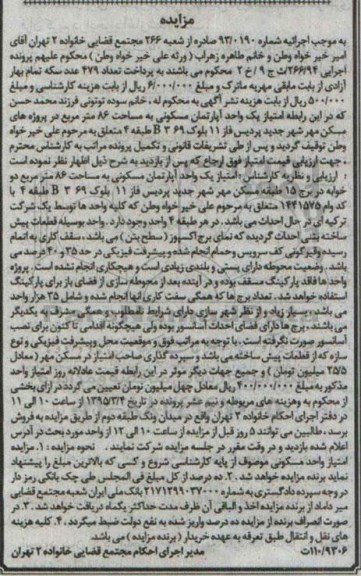 مزایده
به موجب اجرائیه شماره ۹۳/۰۱۹۰ صادره از شعبه ۲۶۶ مجتمع قضایی خانواده ۲ تهران آقای
امیر خیر خواه وطن و خانم طاهره زهراب (ورثه علی خیر خواه وطن) محکوم علیهم پرونده
اجرایی ۲۶۶/۹۴/ث ج ۹ / خ ۲ محکوم می باشند به پرداخت تعداد ۴۷۹ عدد سکه تمام بهار
آزادی از بابت مابقی مهریه ماترک و مبلغ ۶/۰۰۰/۰۰۰ ریال از بابت هزینه کارشناسی و مبلغ
۵۰۰/۰۰۰ ریال از بابت هزینه نشر آگهی به محکوم له، خانم سوده توتونی فرزند محمد حسن
که در این رابطه امتیاز یک واحد آپارتمان مسکونی به مساحت ۸۶ متر مربع در پروژه های
مسکن مهر شهر جدید پردیس فاز ۱۱ بلوک B ۳ ۶۹ طبقه ۴ متعلق به مرحوم علی خیر خواه
وطن توقیف گردید و پس از طی تشریفات قانونی و تکمیل پرونده مراتب به کارشناس محترم
، جهت ارزیابی قیمت امتیاز فوق ارجاع که پس از بازدید به شرح ذیل اظهار نظر نموده است
: ارزیابی و نظریه کارشناس: امتیاز یک واحد آپارتمان مسکونی به مساحت ۸۶ متر مربع دو
خوابه در برج ۱۵ طبقه مسکن مهر شهر جدید پردیس فاز ۱۱ بلوک B ۳ ۶۹ طبقه ۴ با
کد وام ۱۴۴۱۵۷۵ متعلق به مرحوم علی خیر خواه وطن که کلیه واحد ها توسط یک شرکت
ترکیه ای در حال احداث می باشد. در هر طبقه ۴ واحد وجود دارد. واحد بوسیله قطعات پیش
ساخته بتنی احداث گردیده که نمای برج اکسپوز (سطح بتن) می باشد، سقف کاری به اتمام
رسیده و لیزگونی کف سرویس و حمام انجام شده و پیشرفت فیزیکی در حد ۳۵ و ۴۰ درصد می
باشد. وضعیت محوطه دارای پستی و بلندی زیادی است و هیچکاری انجام نشده است. پروژه
واحد ها فاقد پارکینگ مسقف بوده و در آینده بعد از محوطه سازی از فضای باز برای پارکینگ
استفاده خواهد شد. تعداد برج ها که همگی سفت کاری آنها انجام شده و شامل ۳۵ هزار واحد
می باشد، بسیار زیاد و از نظر شهر سازی دارای شرایط نامطلوب و همگی مشرف به یکدیگر
می باشند، برج ها دارای فضای احداث آسانسور بوده ولی هیچگونه اقدامی تا کنون برای نصب
آسانسور صورت نگرفته است. با توجه به مراتب فوق و موقعیت محل و پیشرفت فیزیکی و نوع
سازه که از قطعات پیش ساخته می باشد و سپرده گذاری صاحب امتیاز در مسکن مهر (معادل
۲۵/۵ میلیون تومان) و جمیع جهات دیگر موثر در این رابطه قیمت عادلانه روز امتیاز واحد
مذکور به مبلغ ۴۰۰/۰۰۰/۰۰۰ ریال معادل چهل میلیون تومان تعیین می گردد در ازای بخشی
از محکوم به و هزینه های مربوطه و نیم عشر پرونده در تاریخ ۱۳۹۵/۳/۴ از ساعت ۱۰ الی ۱۱
در دفتر اجرای احکام خانواده ۲ تهران واقع در میدان ونک طبقه دوم از طریق مزایده به فروش
برسد، طالبین می توانند ۵ روز قبل از مزایده از ساعت ۱۰ الی ۱۲ از واحد مورد بحث در آدرس
اعلام شده بازدید و در وقت مقرر در جلسه مزایده شرکت نمایند. نحوه مزایده: ۱. مزایده
امتیاز واحد مسکونی موصوف از پایه کارشناسی شروع و کسی که بالاترین مبلغ را پیشنهاد
نماید برنده مزایده خواهد شد. ۲. ده درصد از کل مبلغ فی المجلس طی چک بانکی رمز دار
در وجه سپرده دادگستری به شماره ۲۱۷۱۳۹۹۰۳۷۰۰۰ بانک ملی ایران شعبه مجتمع قضایی
میر داماد از برنده مزایده اخذ و الباقی آن ظرف مدت حداکثر یکماه دریافت خواهد شد. ۳. در
صورت انصراف برنده از مزایده ده درصد واریز شده به نفع دولت ضبط میگردد. ۴. کلیه هزینه
های نقل و انتقال طبق تعرفه به عهده خریدار (برنده مزایده) می باشد.
۱۱۰/۹۳۰۶ت مدیر اجرای احکام مجتمع قضایی خانواده ۲ تهران